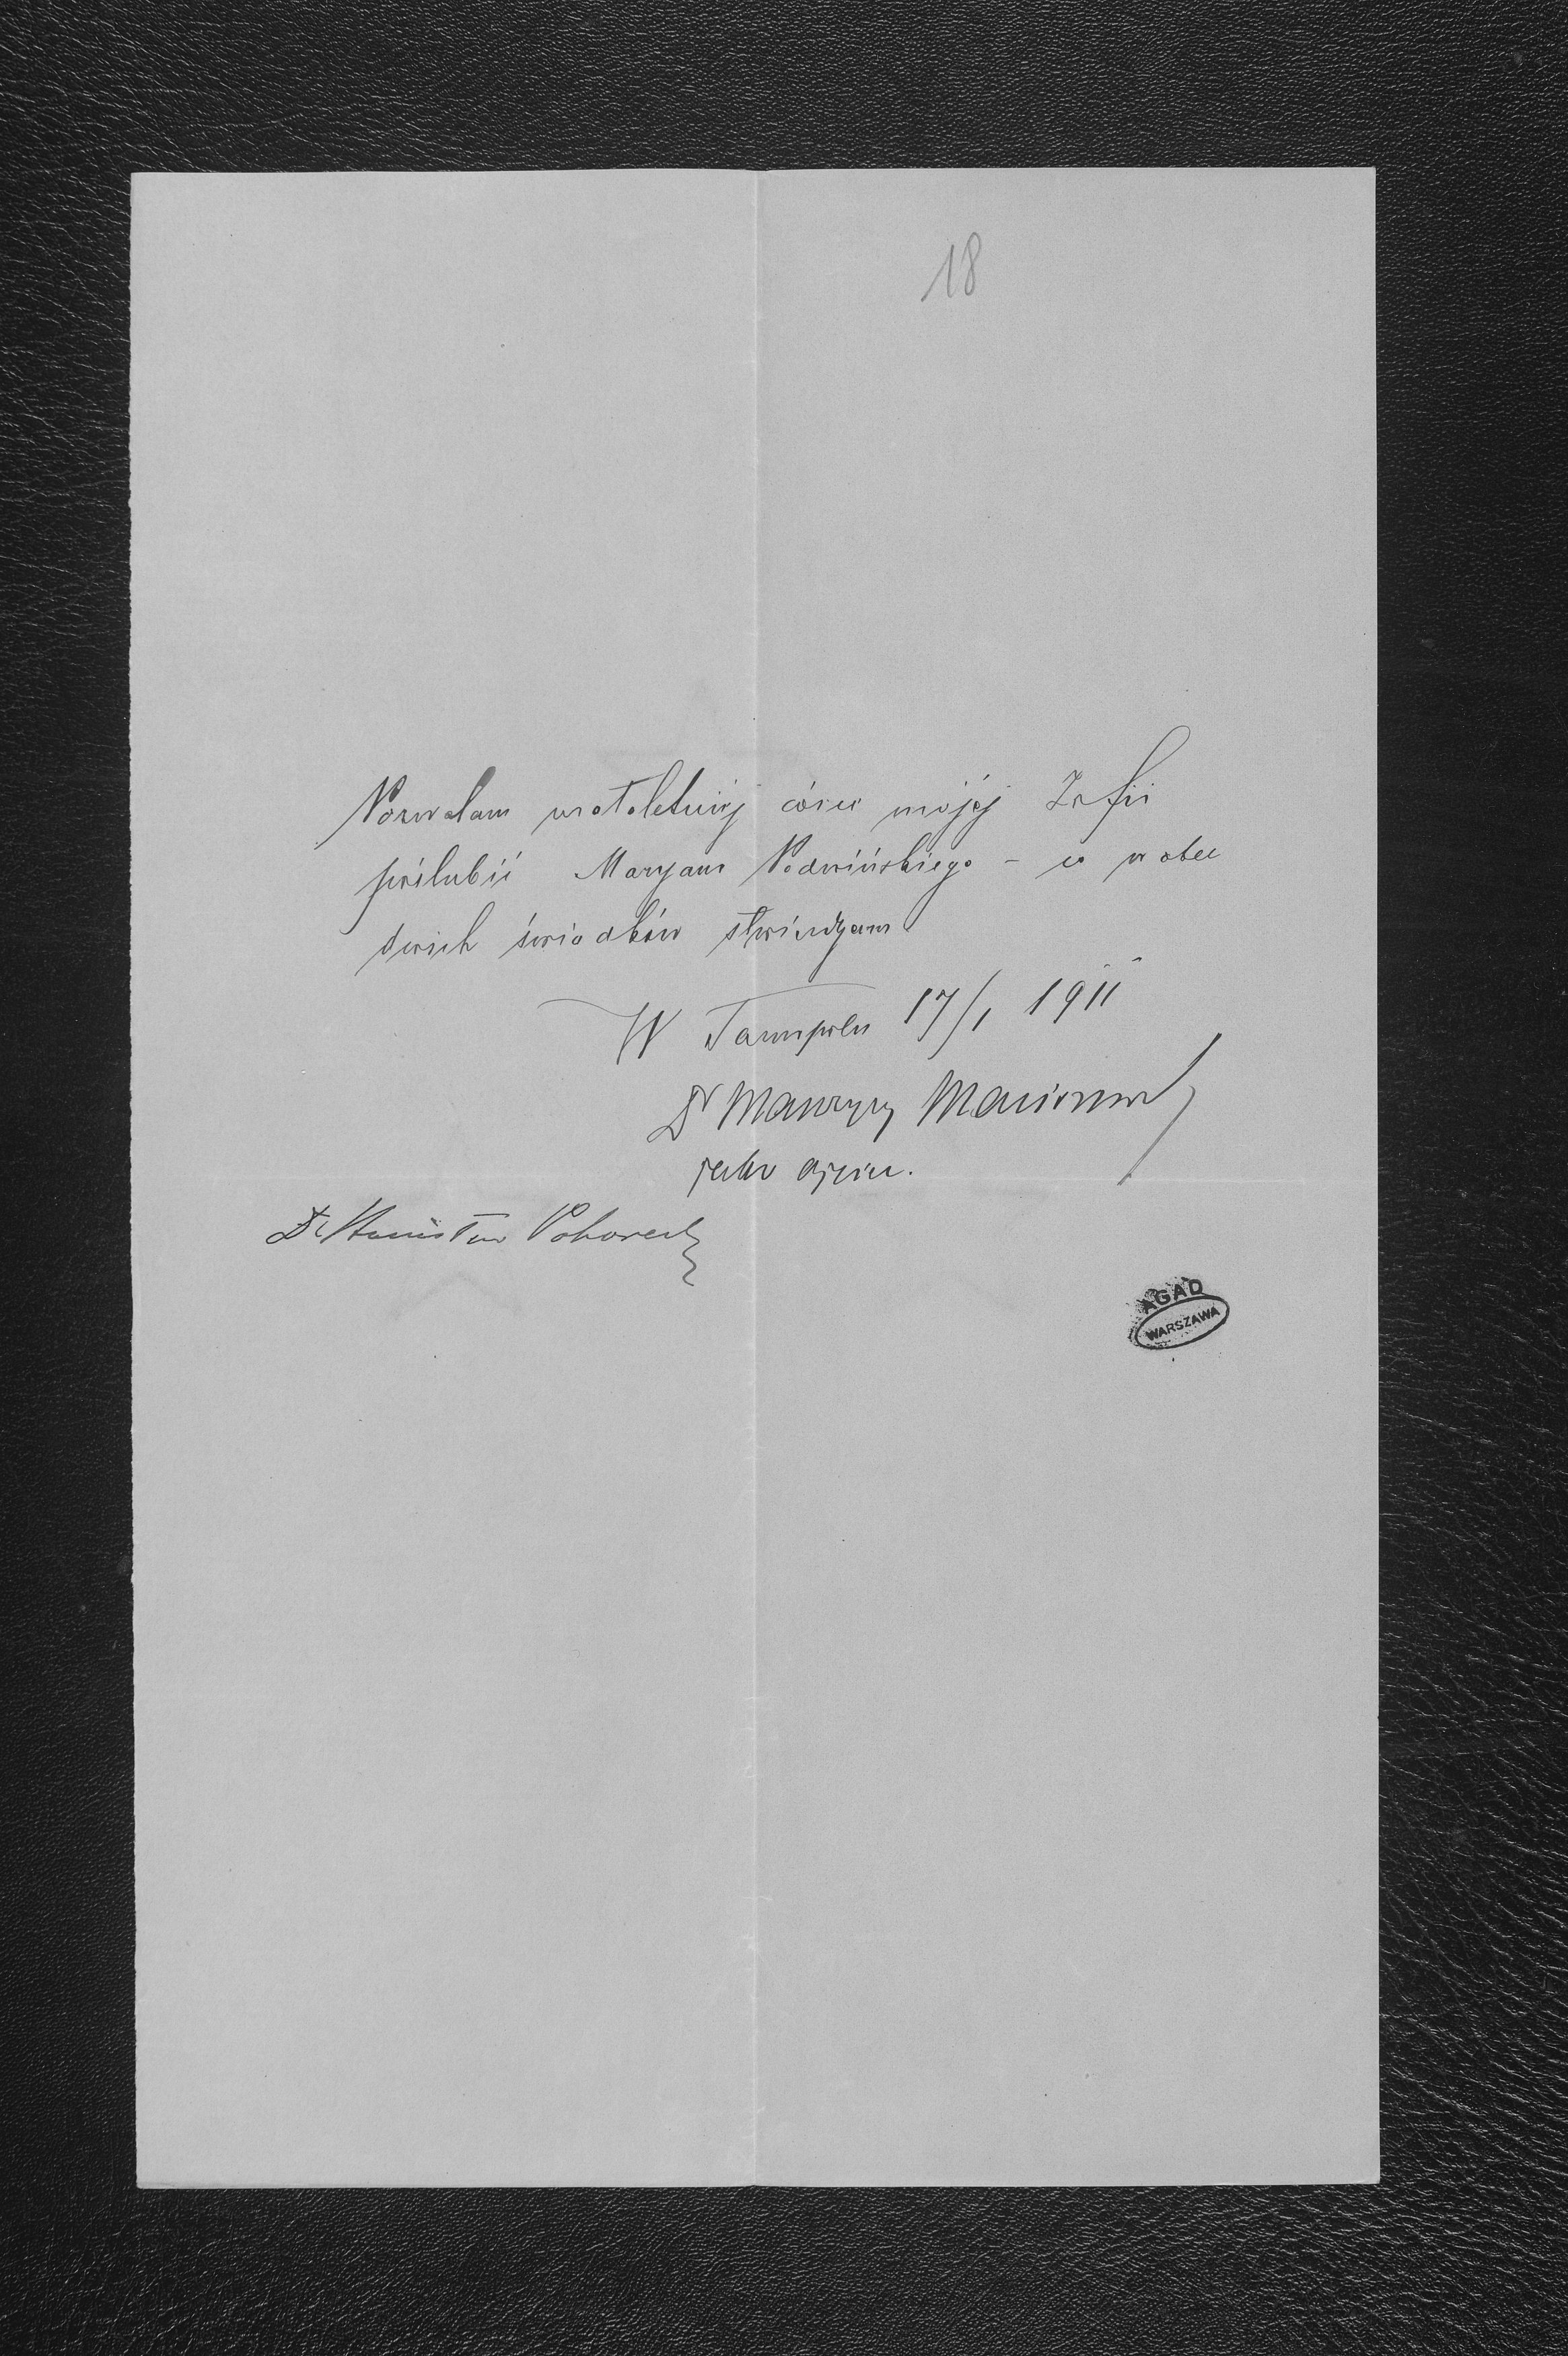 18
Pozwalam małoletniej córce mojéj Zofii
poślubić Maryana Podwińskiego – co wobec
dwóch świadków stwierdzam
W Tarnopolu 17/1 1911
Dr Maurzycy
jako ojciec.
Dr Stanisław Pohorecki
AGAD
WARSZAWA